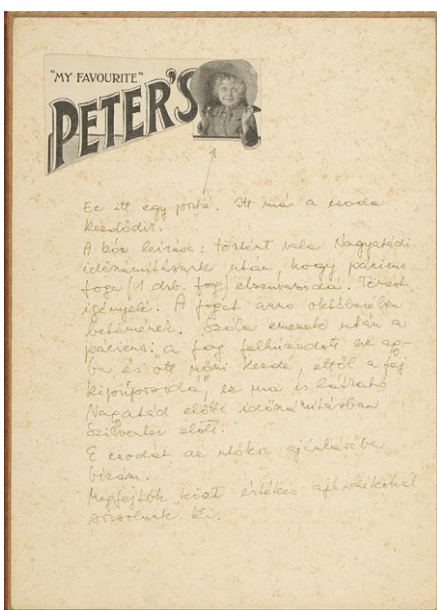 "MY FAVOURITE"
PETER'S
Ez itt egy porta. Itt már a csoda
kezdődik.
A kór leirása: történt vala Nagyatádi
időszámitásunk után, hogy páciens
foga (1 drb. fog) elszuvasodá. Tömést
igényelé. A fogat anno októberében
betömének. Szóla emezek után a
páciens: a fog felhúzódott az agy-
ba és ott nőni kezde, ettől a fej
ez ma is látható
Nagyatád előtti időszámitásban
Szilveszter előtt.
E csodát az utókor ajánlásába
bizám.
Megfejtők közt értékes ajándékokat
sorsolunk ki.